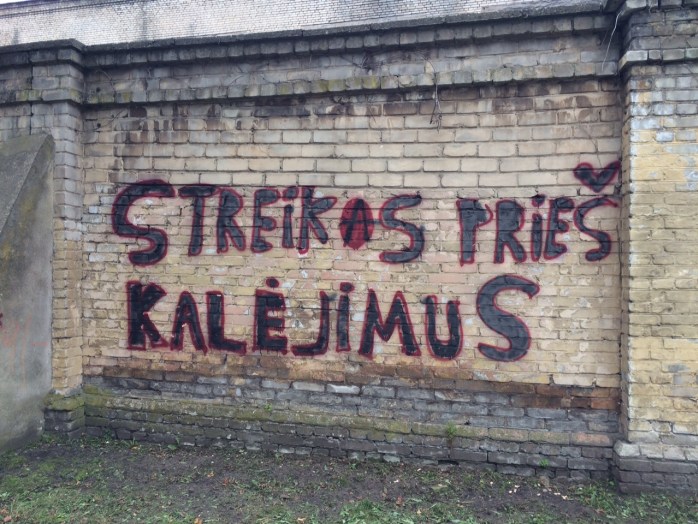 STREiKAS PRiEŠ
KALĖJIMUS